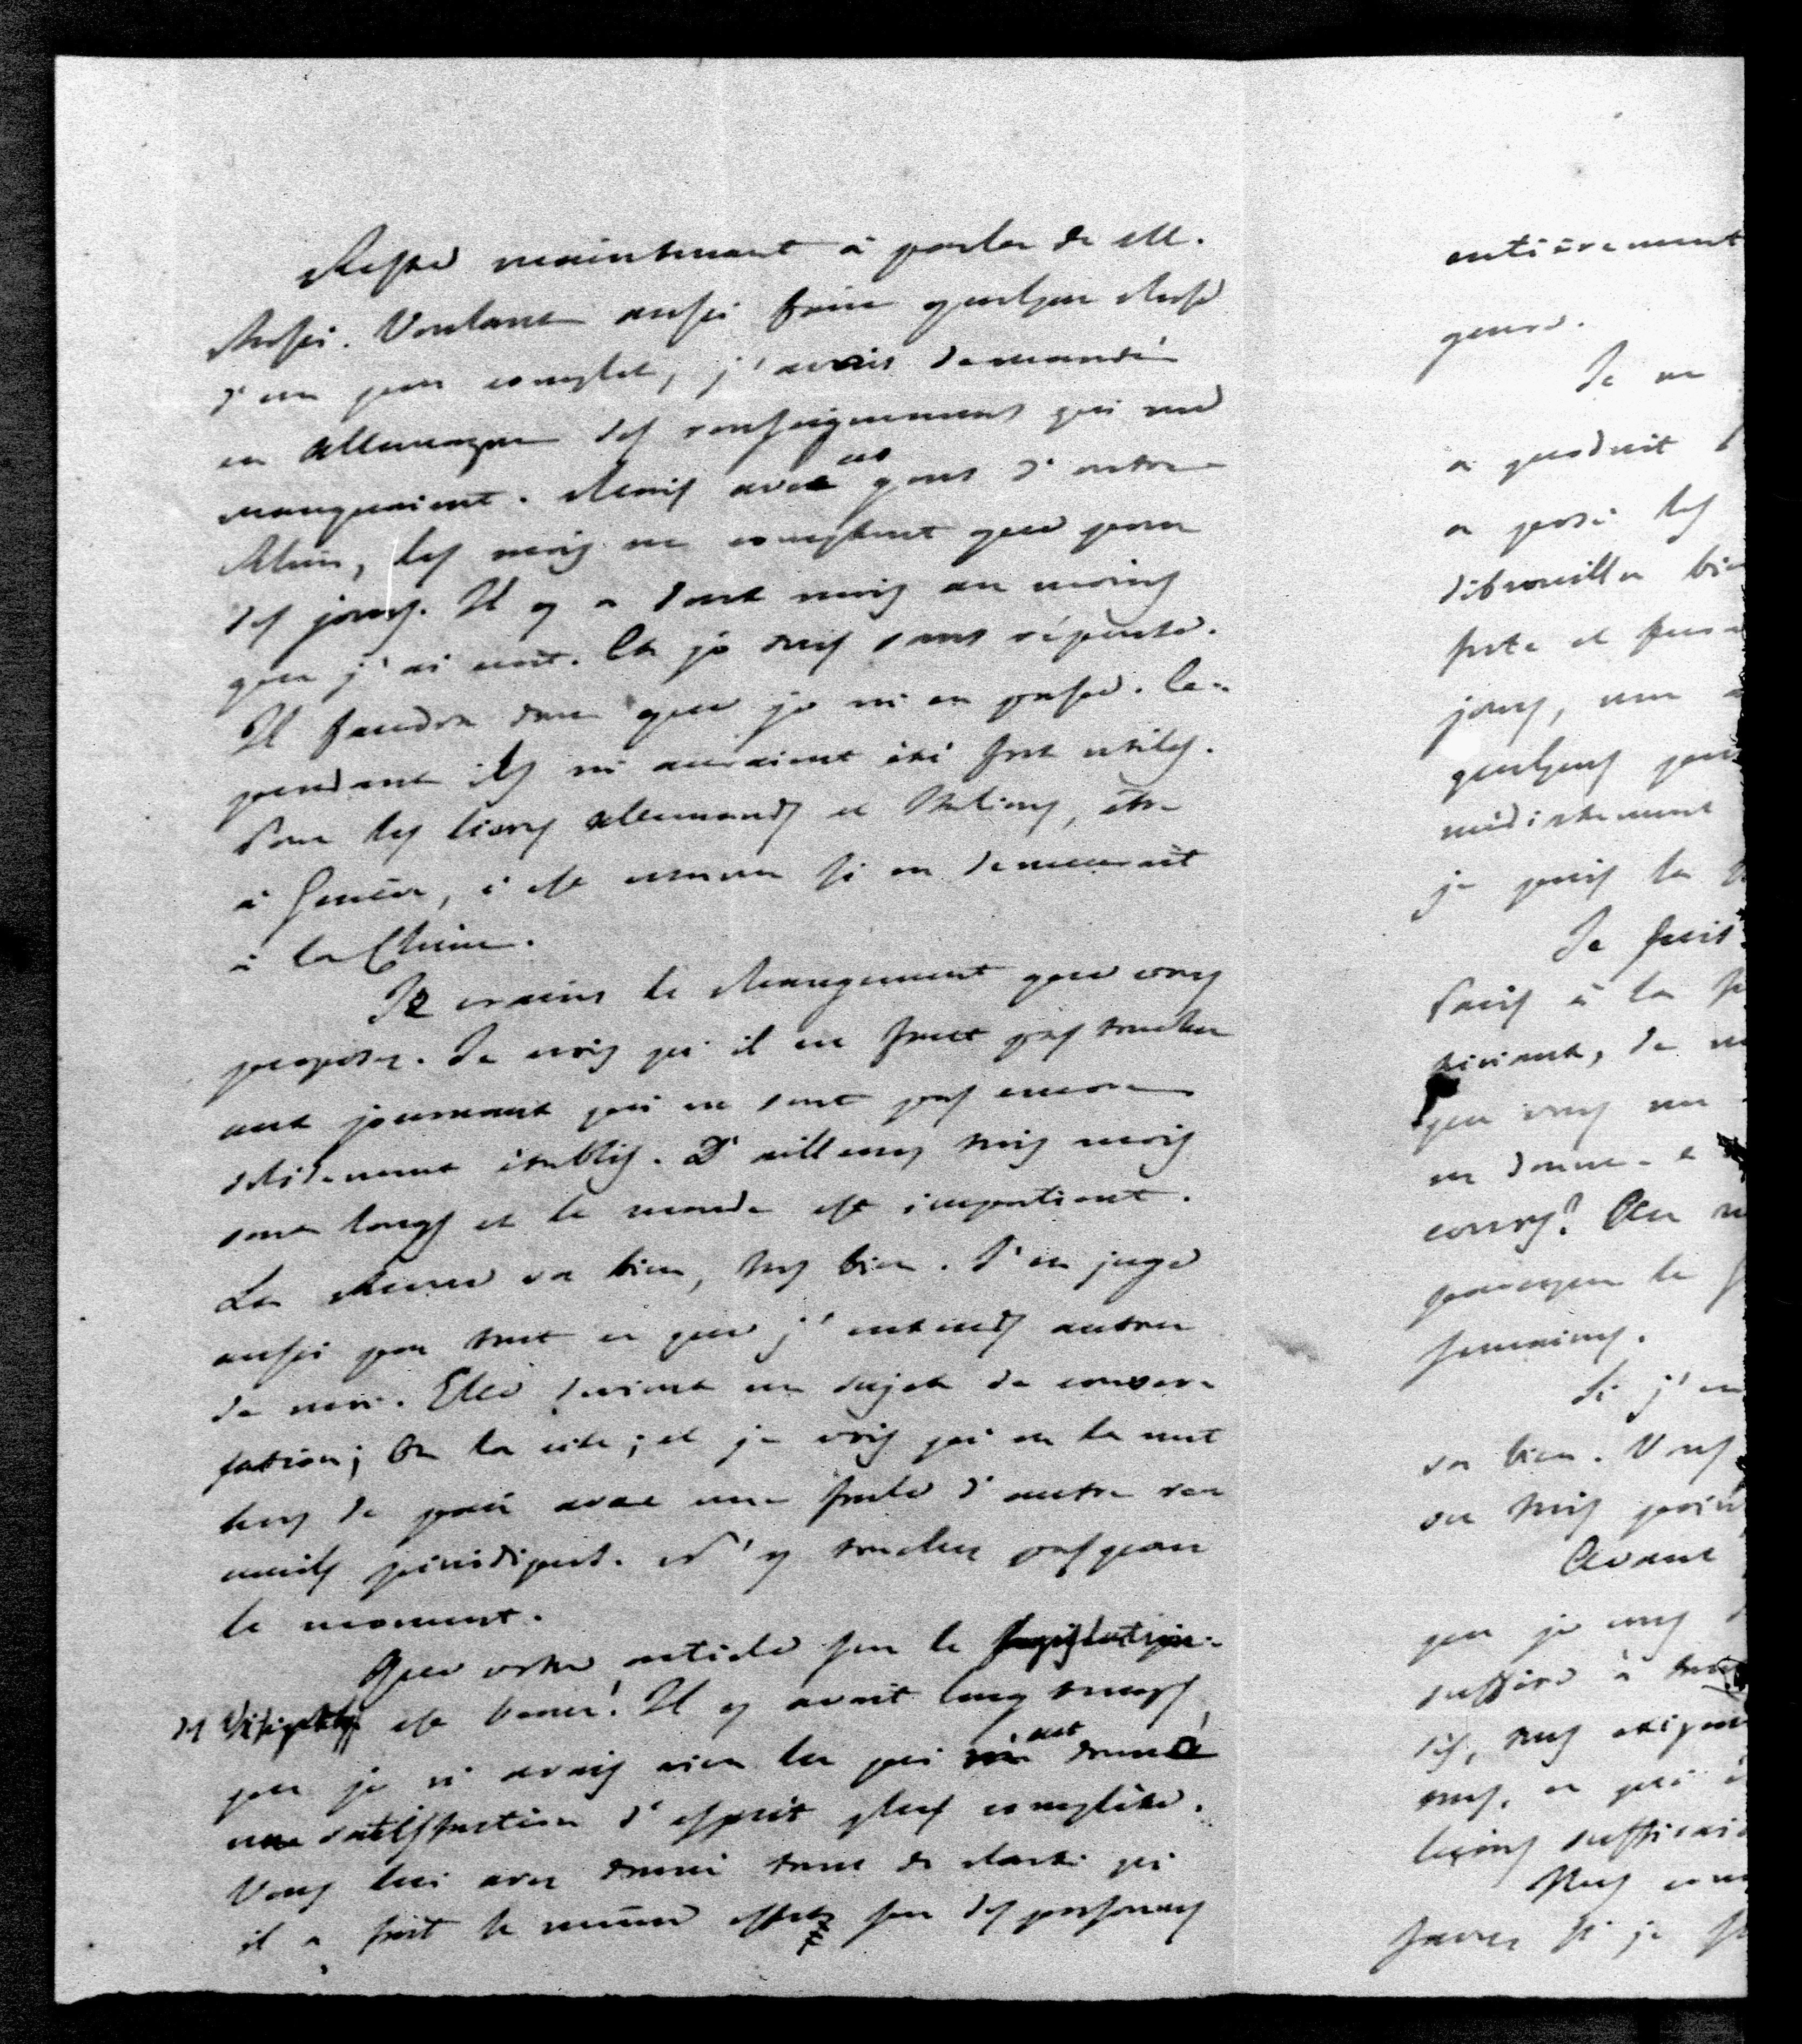 Reste maintenant à parler de M.
Rossi. Voulant aussi faire quelque chose
d'un peu complet, j'avais demandé
en Allemagne des renseignemens qui me
manquaient. Mais avec ces gens d'outre
Rhin, les mois ne comptent que pour
des jours. Il y a deux mois au moins
que j'ai écrit. Et je suis sans réponse.
Il faudra donc que je m'en passe. Ce-
pendant ils m'auraient été fort utiles.
Pour les livres allemands et Italiens, être
à Genève, c'est comme si on demeurait
à la Chine.
Je crains le changement que vous
proposez. Je crois qu'il ne faut pas toucher
aux journaux qui ne sont pas encore
solidement établis. D'ailleurs trois mois
sont longs et le monde est impatient.
La Revue va bien, très bien. J'en juge
aussi par tout ce que j'entends autour
de moi. Elle devient un sujet de conver-
sation; On la cite; et je vois qu'on la met
hors de pair avec une foule d'autres re-
cueils périodiques. N'y touchez pas pour
le moment.
Que votre article sur la législation
des Visigoths est bon! Il y avait long temps
que je n'avais rien lu qui m'eut donné
une satisfaction d'esprit plus complète.
Vous lui avez donné tant de clarté qu'
il a fait le même effet sur des personnes
entièrement
genre.
Je ne
a produit
a posé les
débrouiller
forte et
jours, une
quelques
médiatement
je puis la
Je suis
Paris à la
que vous me
en donne
cours? On
presque le
semaines.
Si j'
va bien. Vous
ou trois
Avant
que je vous
suffire à
nous, ce qui
leçons
Mes
savez si je